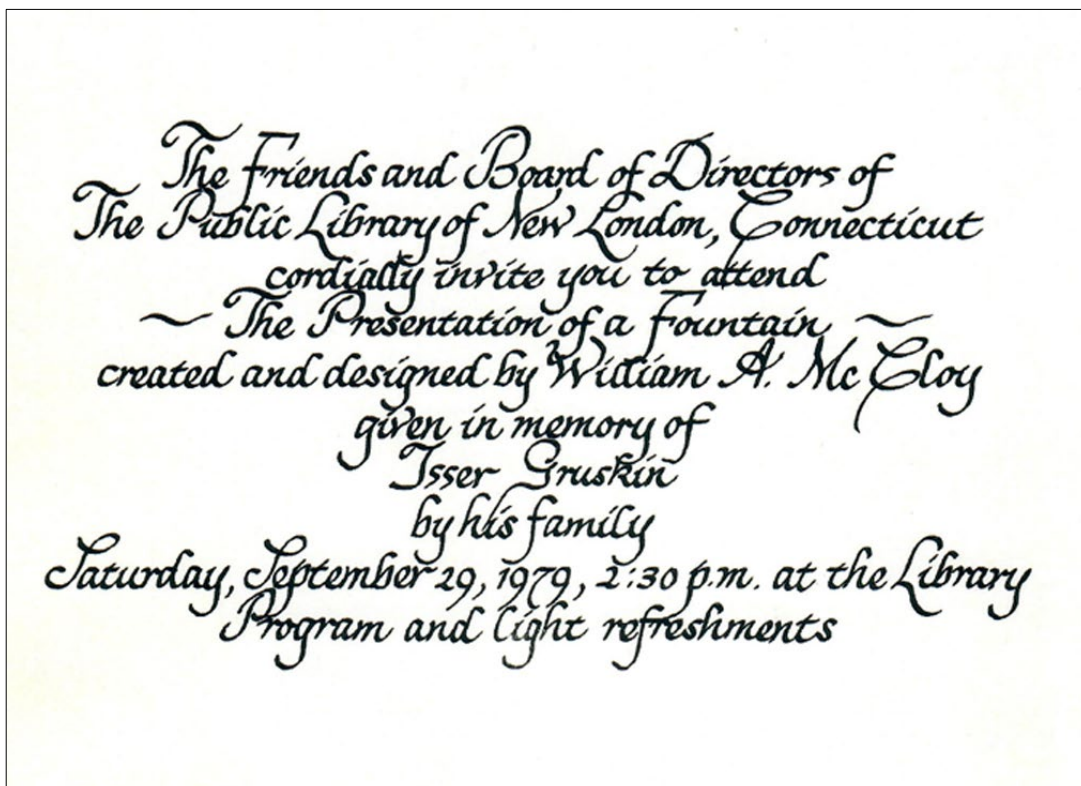 The Friends and Board of Directors of
The Public Library of New London, Connecticut
cordially invite you to attend
~ The Presentation of a Fountain ~
created and designed by William A. McCloy
given in memory of
Isser Gruskin
by his family
Saturday, September 29, 1979, 2:30 p.m. at the Library
Program and light refreshments